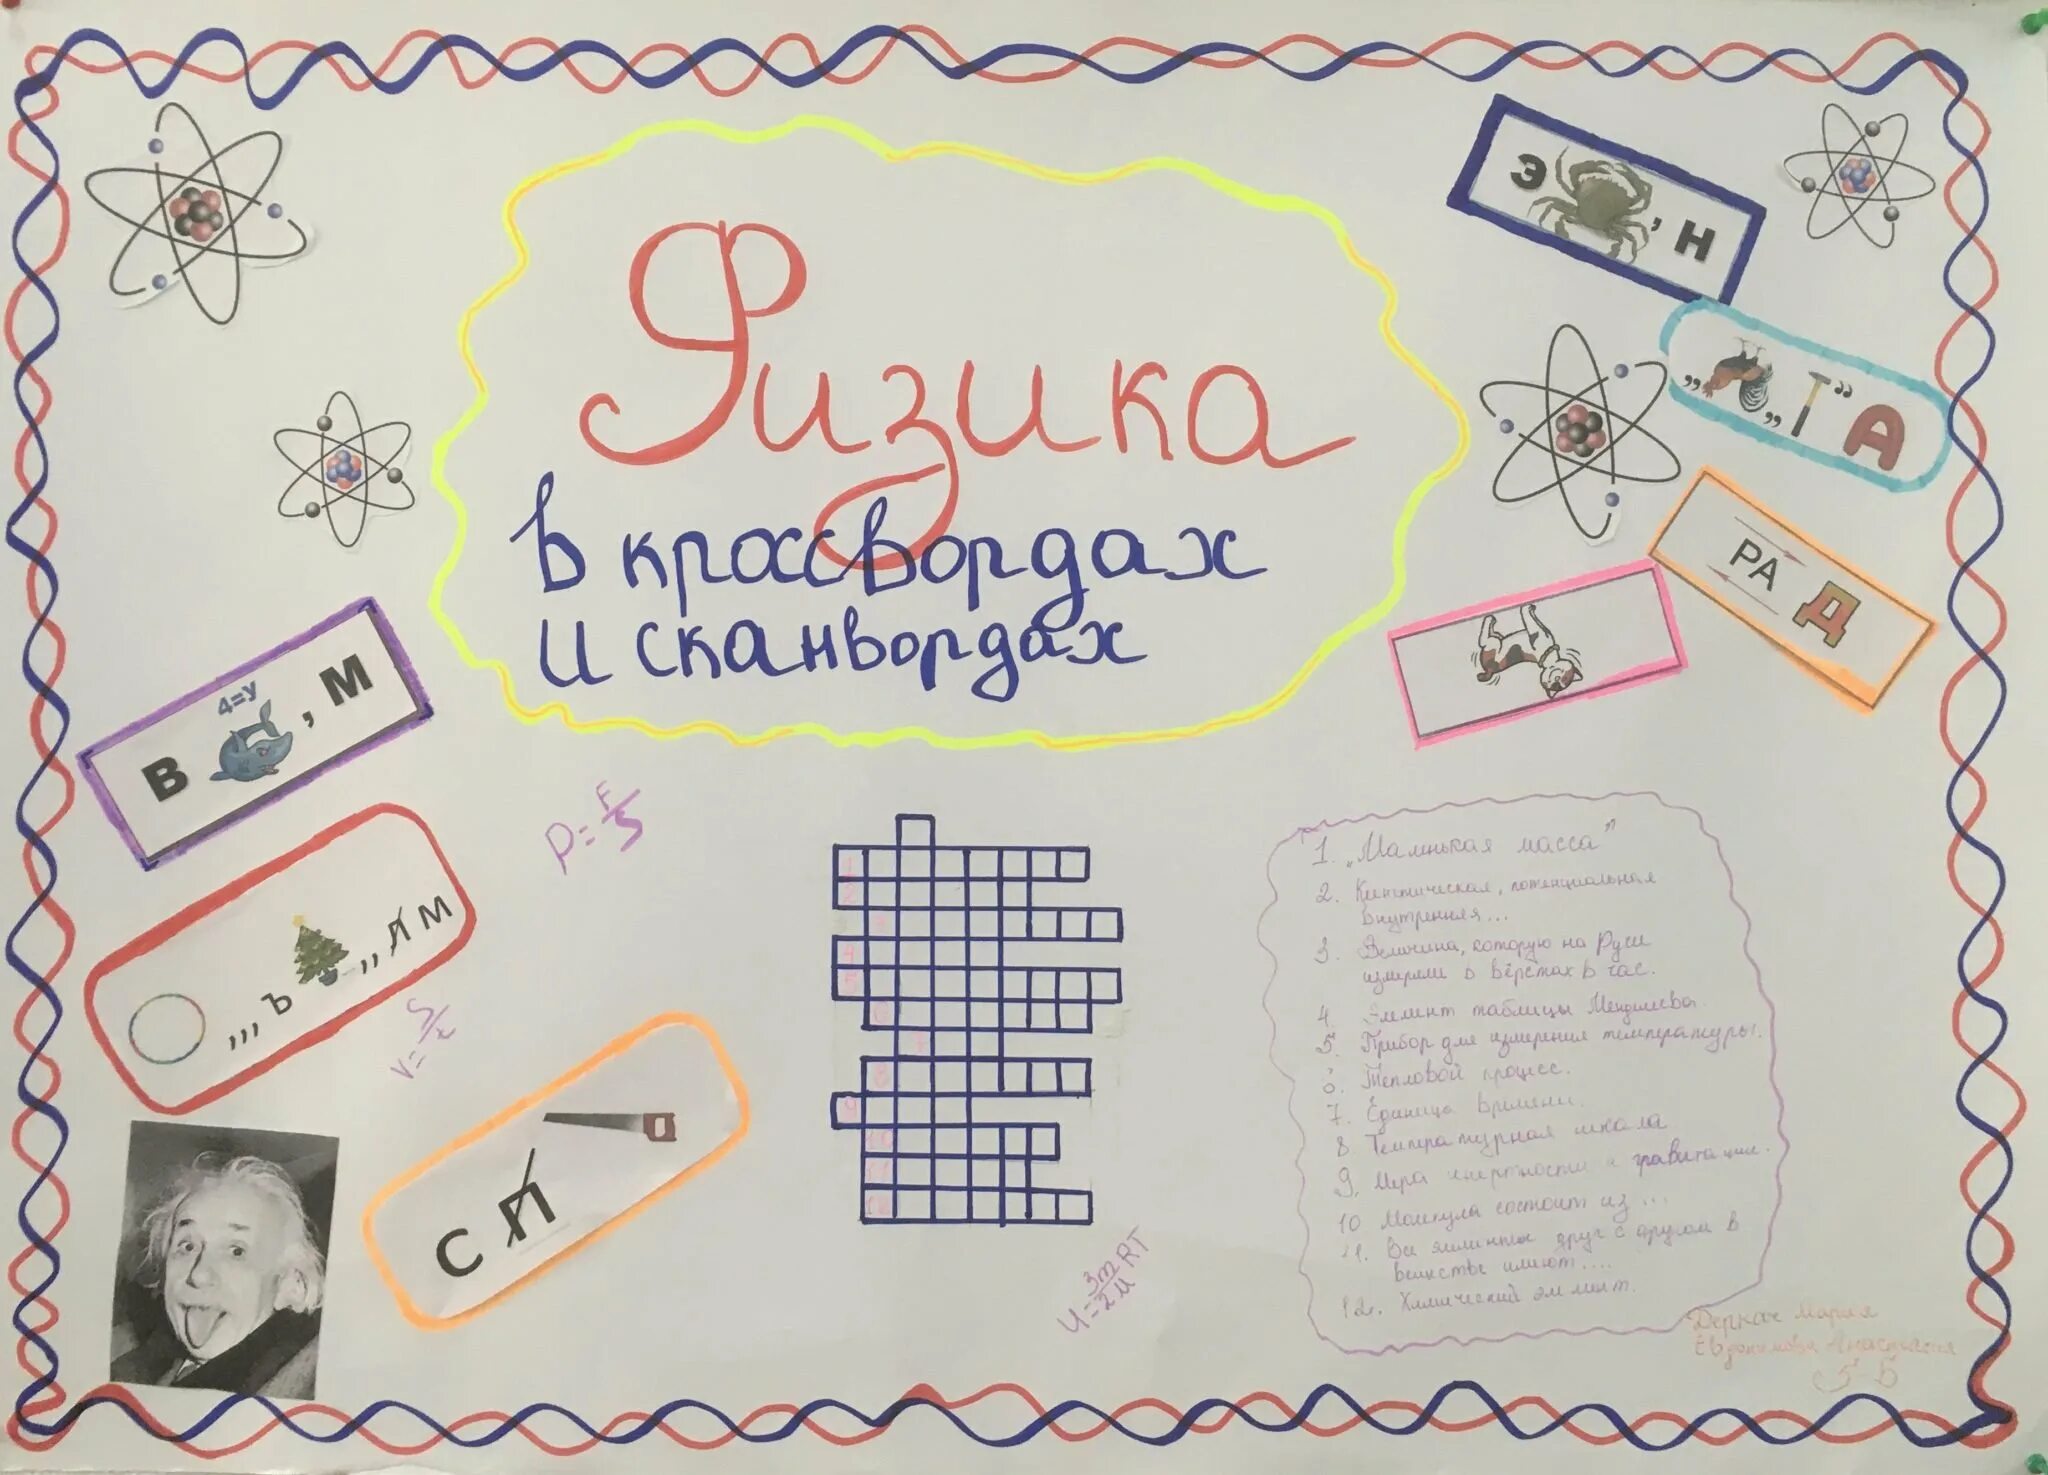 Физика
в кросвордах
и сканвордах
Э , Н
„ „ “ А
РА Д
4=У
В , М
,,, Ъ ,, Л М
С П
P=F/S
V=S/t
U=3m/2M RT
1
2
4
5
6
7
8
9
10
11
12
1. „Маленькая масса"
2. Кинетическая, потенциальная
внутренняя...
3. Величина, которую на Руси
измеряли в вёрстах в час.
4. Элемент таблицы Менделеева.
5. Прибор для измерения температуры.
6. Тепловой процесс.
7. Единица времени.
8. Температурная шкала
9. Мера инертности и гравитации.
10 Молекула состоит из ...
11. Все друг с другом в
веществе имеют....
12. Химический элемент.
Деркач Мария
Евдокимова Анастасия
5-Б